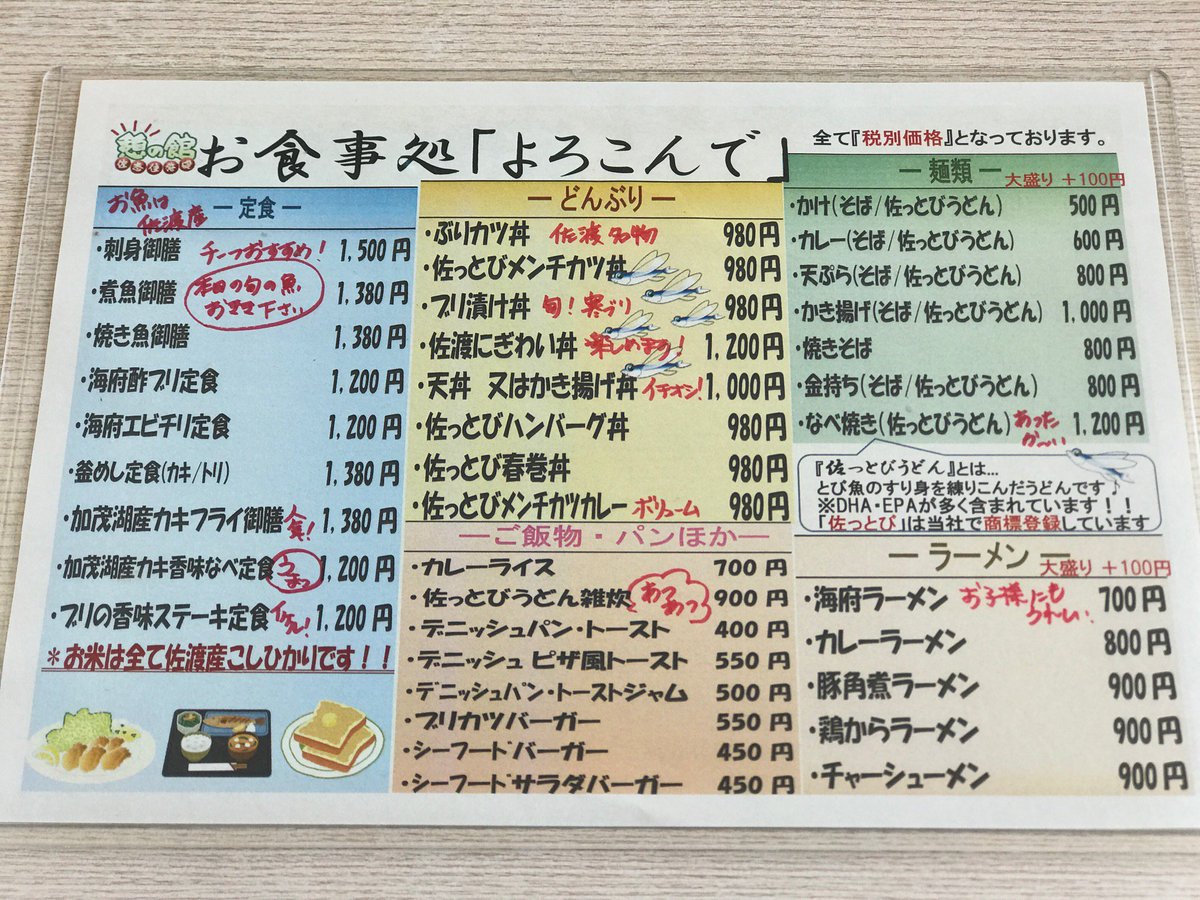 お食事処「よろこんで」
全て『税別価格』となっております。
お魚は
佐渡産
― 定食 ―
・刺身御膳 チーフおすすめ! 1,500円
・煮魚御膳 1,380円
本日の旬の魚
お尋ね下さい
・焼き魚御膳 1,380円
・海府酢ブリ定食 1,200円
・海府エビチリ定食 1,200円
・釜めし定食(カキ/トリ) 1,380円
・加茂湖産カキフライ御膳 人気! 1,380円
・加茂湖産カキ香味なべ定食 1,200円
・ブリの香味ステーキ定食 イケル! 1,200円
*お米は全て佐渡産こしひかりです!!
― どんぶり ―
・ぶりカツ丼 佐渡名物 980円
・佐っとびメンチカツ丼 980円
・ブリ漬け丼 旬!寒ぶり 980円
・佐渡にぎわい丼 楽しめます! 1,200円
・天丼 又はかき揚げ丼 イチオシ! 1,000円
・佐っとびハンバーグ丼 980円
・佐っとび春巻丼 980円
・佐っとびメンチカツカレー ボリューム 980円
―ご飯物・パンほか―
・カレーライス 700円
・佐っとびうどん雑炊 あつあつ 900円
・デニッシュパン・トースト 400円
・デニッシュ ピザ風トースト 550円
・デニッシュパン・トーストジャム 500円
・ブリカツバーガー 550円
・シーフードバーガー 450円
・シーフードサラダバーガー 450円
― 麺類 ― 大盛り +100円
・かけ(そば/佐っとびうどん) 500円
・カレー(そば/佐っとびうどん) 600円
・天ぷら(そば/佐っとびうどん) 800円
・かき揚げ(そば/佐っとびうどん) 1,000円
・焼きそば 800円
・金持ち(そば/佐っとびうどん) 800円
・なべ焼き(佐っとびうどん) あったか〜い 1,200円
『佐っとびうどん』とは…
とび魚のすり身を練りこんだうどんです♪
※DHA・EPAが多く含まれています!!
「佐っとび」は当社で商標登録しています
― ラーメン ― 大盛り +100円
・海府ラーメン お子様にも 700円
・カレーラーメン 800円
・豚角煮ラーメン 900円
・鶏からラーメン 900円
・チャーシューメン 900円